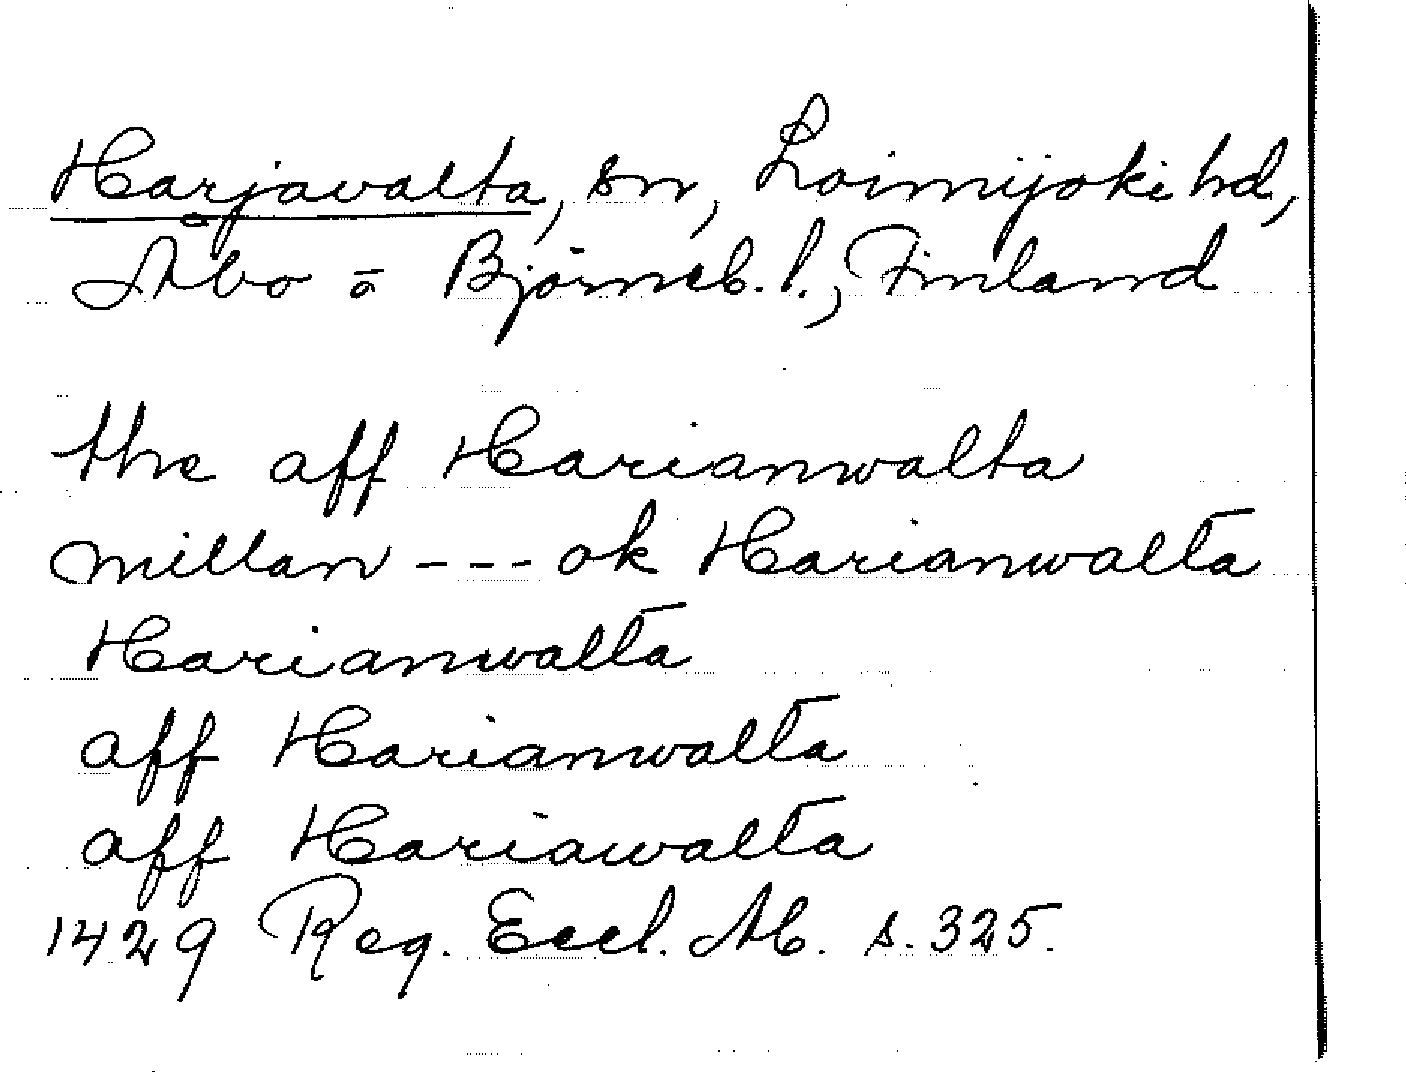 Harjavalta, sn, Loimijoki hd,
Åbo o Björneb. l., Finland
the aff Harianwalta
millan --- ok Harianwalta
Harianwalta
aff Harianwalta
aff Hariawalta
1429 Reg. Eccl. Ab. s. 325.